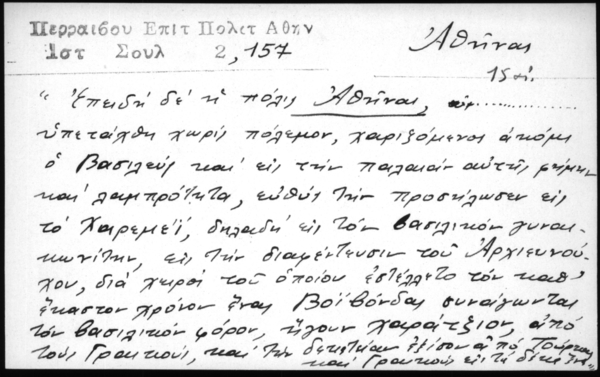 Περραιβου Επιτ Πολετ Αθην
Ιστ Σουλ 2, 157
Ἀθῆναι
15 αἰ.
"Ἐπειδή δέ ἡ πόλις Ἀθῆναι, ..............
ὑπετάχθη χωρίς πόλεμον, χαριζόμενος ἀκόμη
ὁ Βασιλεύς καί εἰς τήν παλαιάν αὐτῆς φήμην
καί λαμπρότητα, εὐθύς τήν προσήλωσεν εἰς
τό Χαρεμεΐ, δηλαδή εἰς τόν βασιλικόν γυναι-
κωνίτην, εἰς τήν διαφέντευσιν τοῦ Ἀρχιευνού-
χου, διά χειρός τοῦ ὁποίου ἐστέλλετο τόν καθ'
ἕκαστον χρόνον ἕνας Βοϊβόνδας συνάγωντας
τόν βασιλικόν φόρον, ἤγουν χαράτζιον, ἀπό
τούς Γραικούς, καί τήν δεκατείαν ἐξ ἴσου ἀπό Τούρκους
καί Γραικούς εἰς τά δέκα ἕνα"